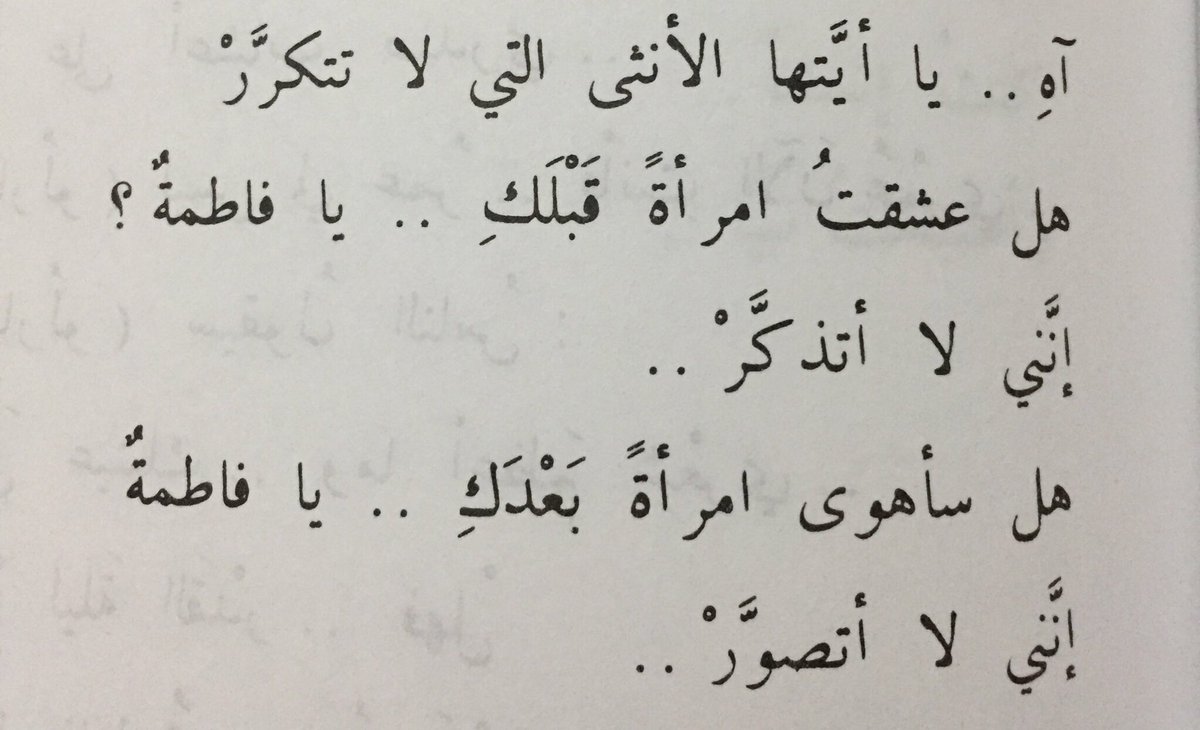 آهِ .. يا أيَّتها الأنثى التي لا تتكررَّْ
هل عشقتُ امرأةً قَبْلَكِ .. يا فاطمةٌ ؟
إنَّني لا أتذكَّرْ ..
هل سأهوى امرأةً بَعْدَكِ .. يا فاطمةٌ
إنَّني لا أتصورَّْ ..